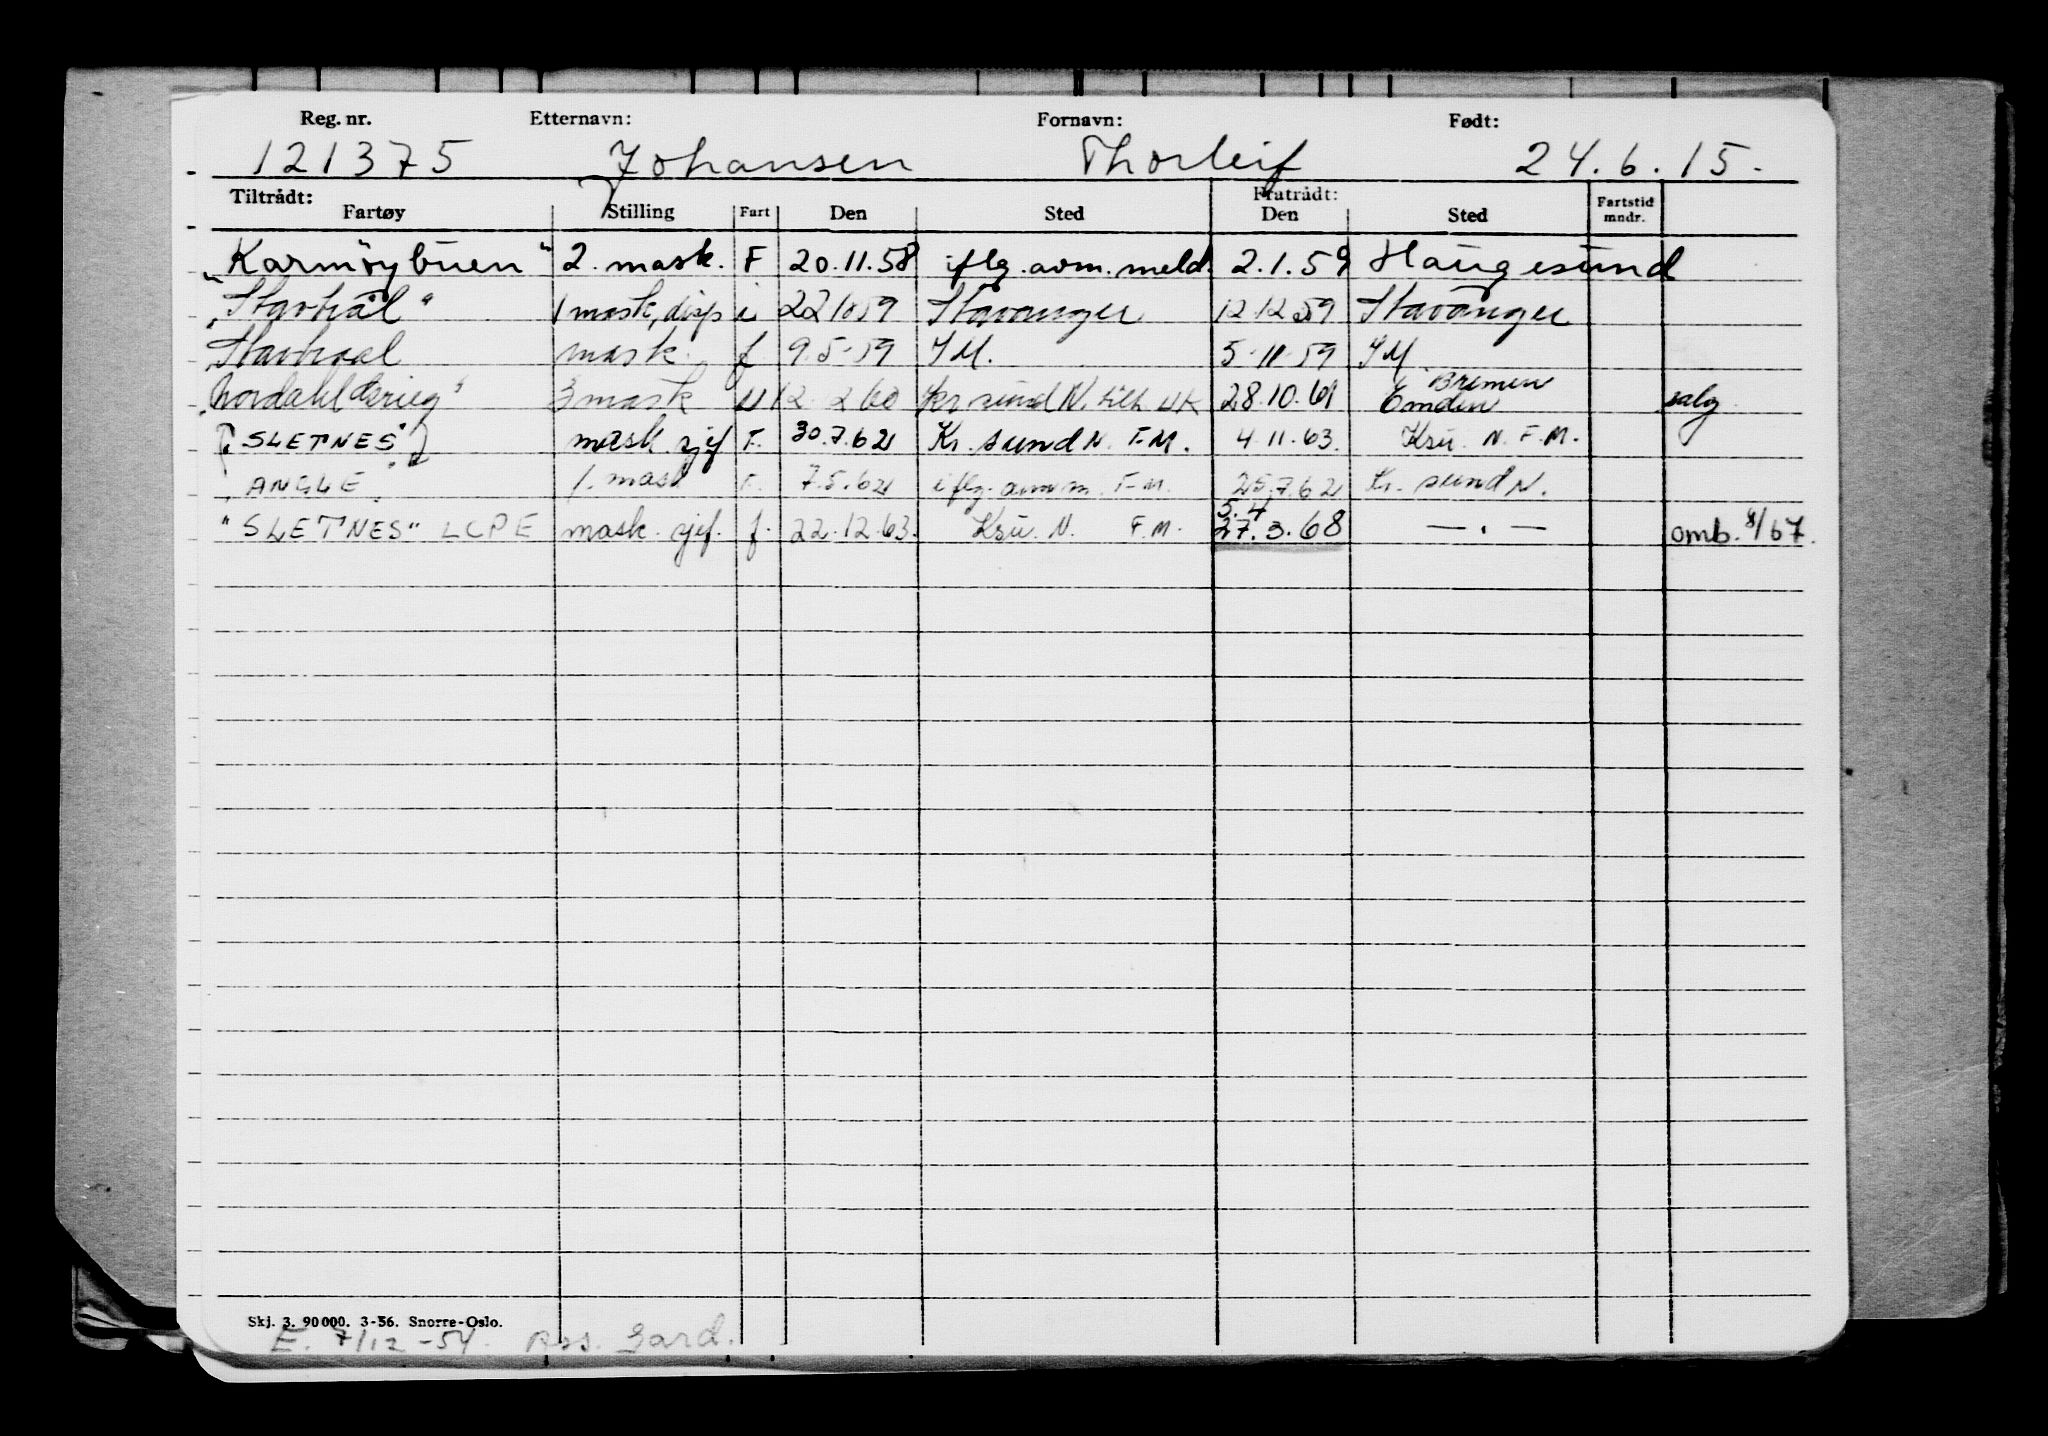 Reg. nr. Etternavn: Fornavn: Født:
121375 Johansen Thorleif 24.6.15.
Tiltrådt: Fratrådt:
Fartøy Stilling Fart Den Sted Den Sted Fartstid mndr.
"Karmöybuen" 2. mask. F 20.11.58 iflg. avm. meld. 2.1.59 Haugesund
"Stavhål" 1 mask, disp i 22 10 59 Stavanger 12 12 59 Stavanger
Stavhval mask. f 9.5.59 FM. 5-11-59 FM
"Nordahl Grieg" 3 mask U 12 2 60 Kr sund N. 28.10.61 Bremen Emden salg
("SLETNES") mask. sjef F. 30.7.62 Kr. sund N. F.M. 4.11.63. Ksu. N. F.M.
"ANGLE" 1. mask F. 7.5.62 iflg. avm. F.M. 25.7.62 Kr. sund N.
5.4
"SLETNES" LCPE mask. sjef. f. 22.12.63. Ksu. N. F.M. 27.3.68 — . — omb. 8/67.
Skj. 3. 90 000. 3-56. Snorre-Oslo.
E. 7/12-54. Ass. Gard.